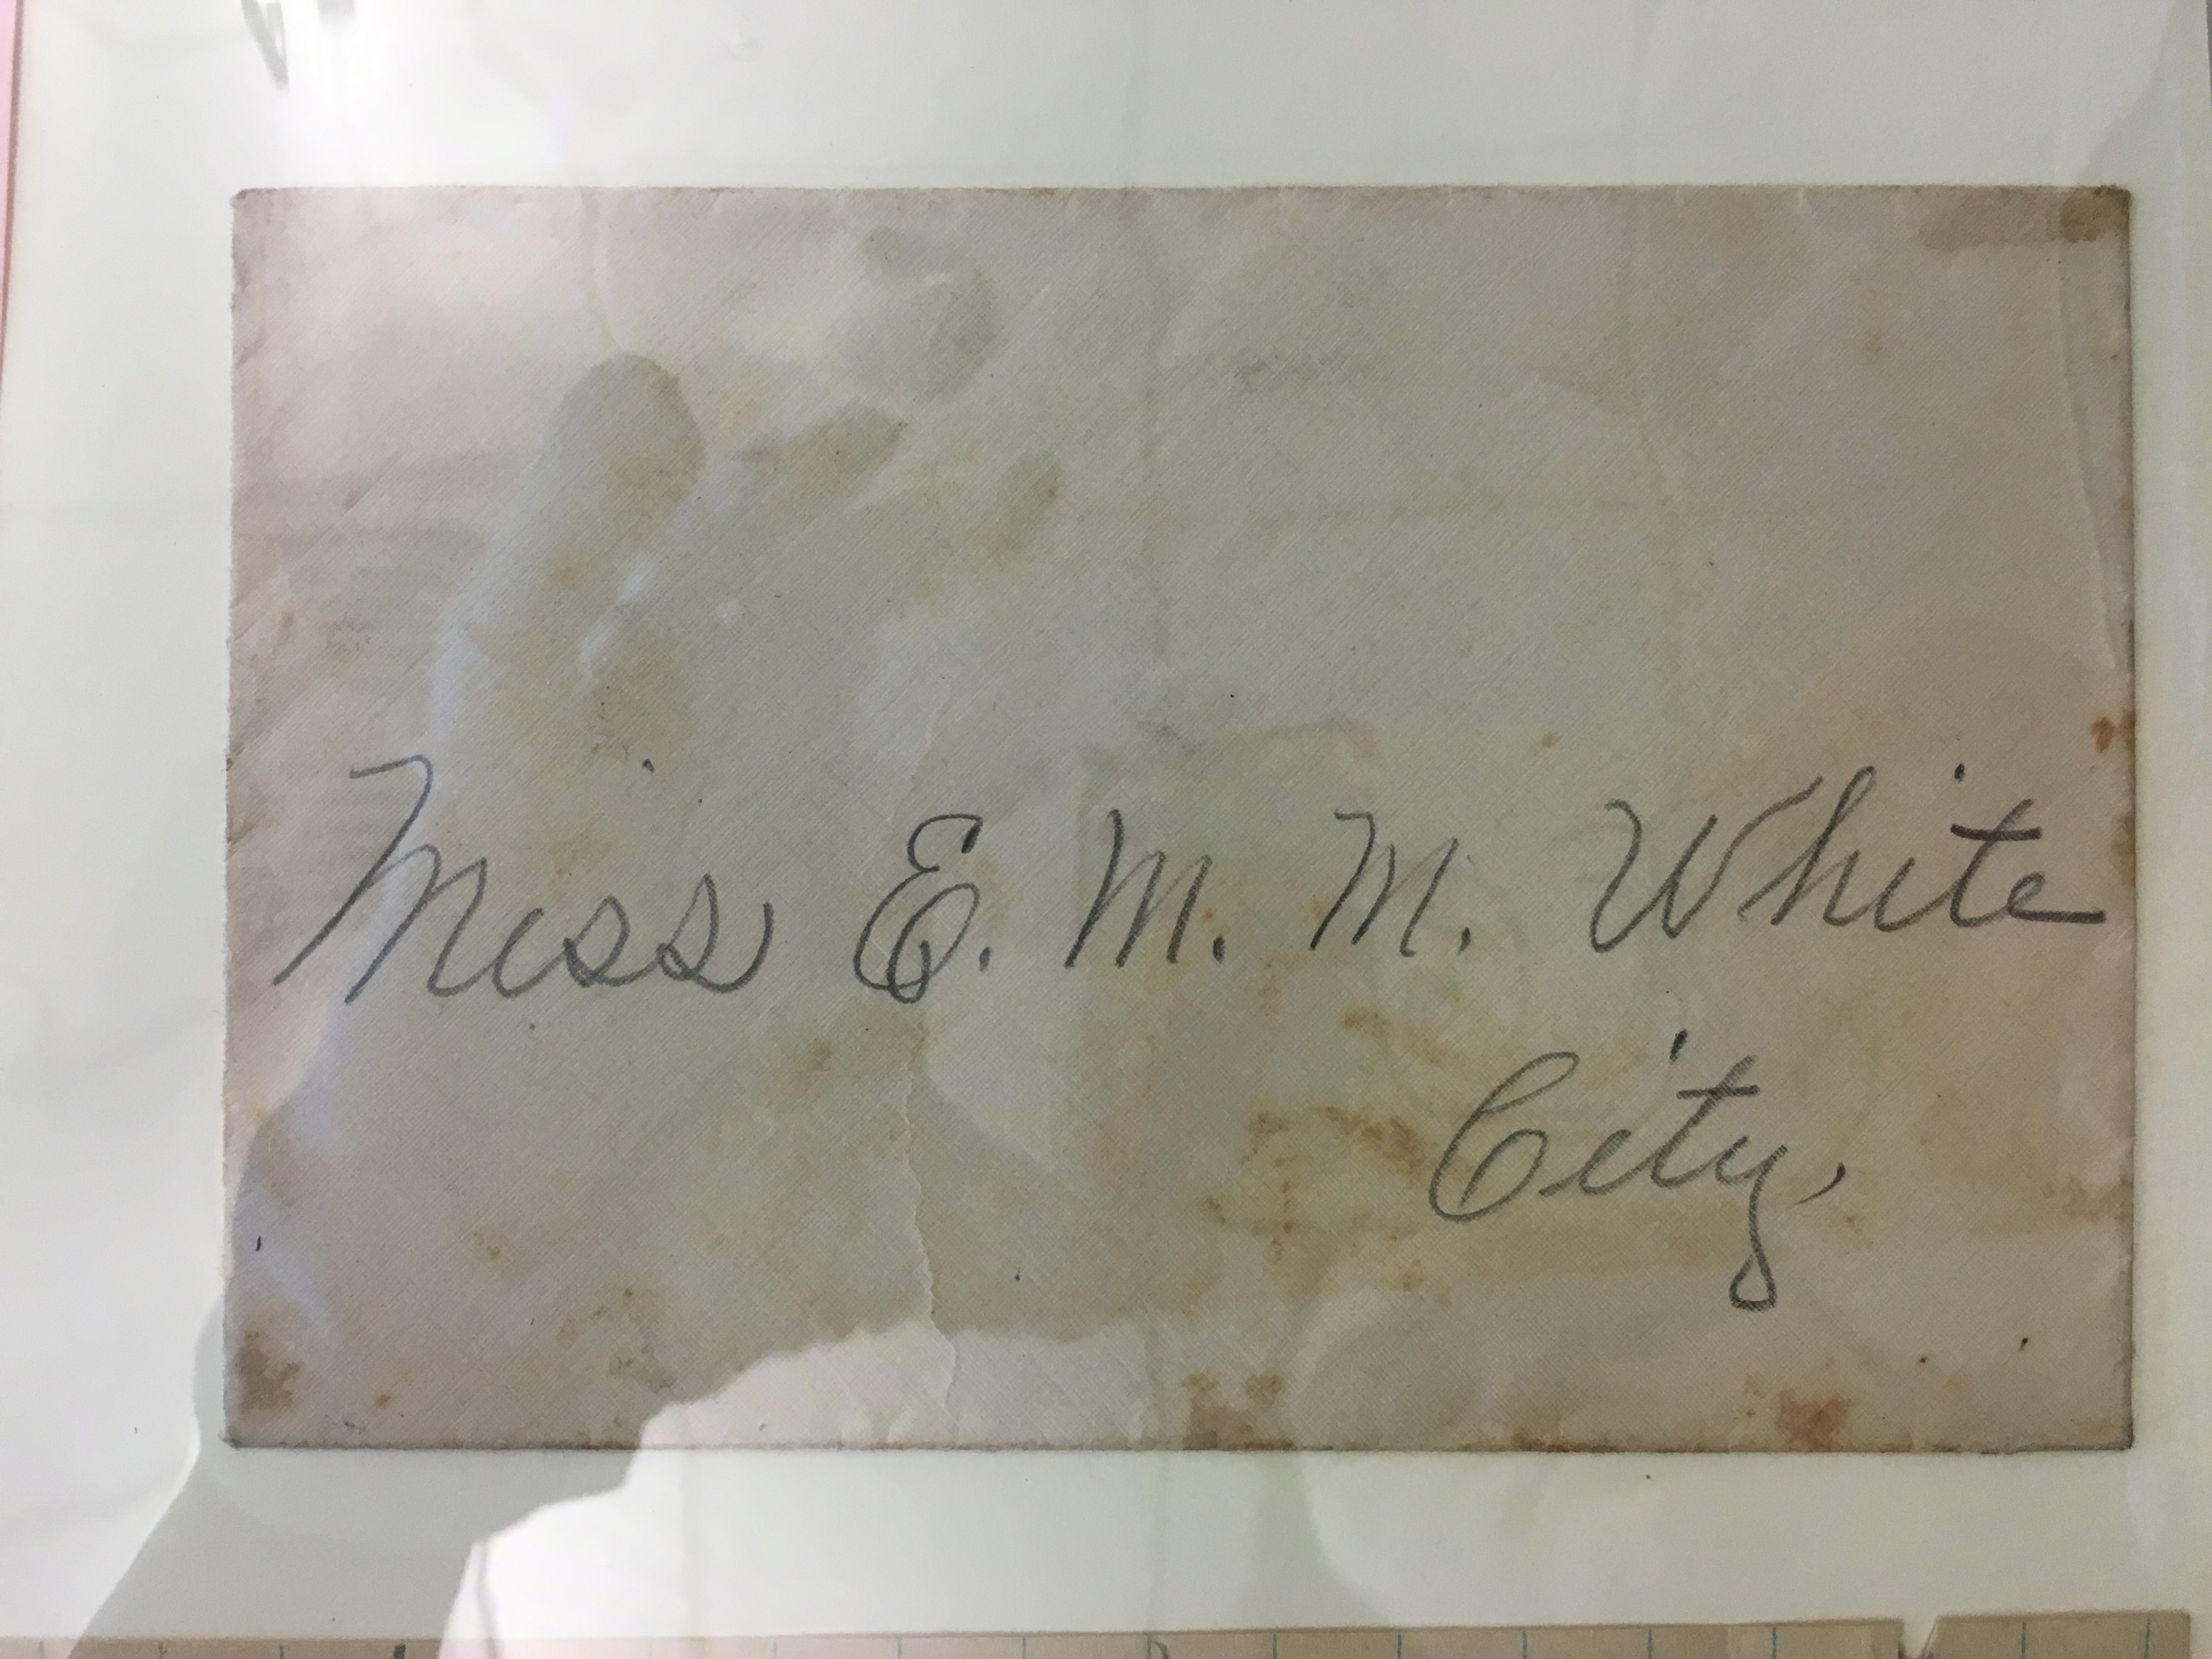 Miss E. M. M. White
City,